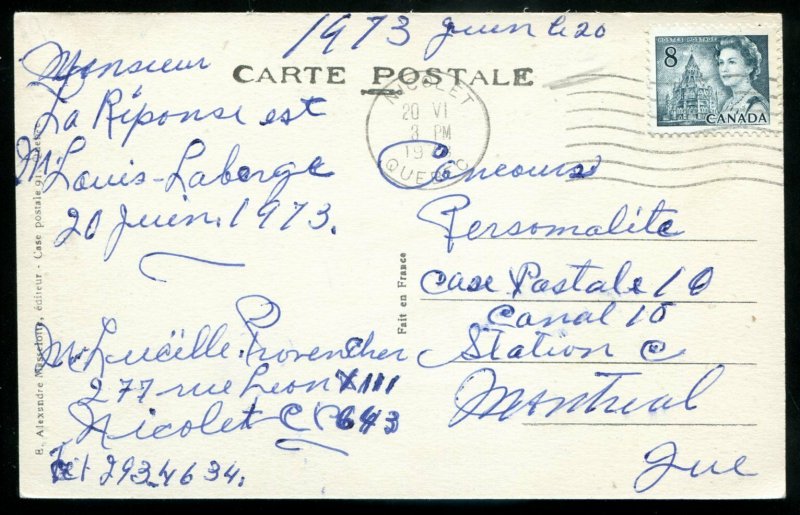 1973 juin le 20
CARTE POSTALE
Monsieur
La Réponse est
M. Louis-Laberge
20 juin. 1973.
M. Lucille. Provencher
277 rue Leon XIII
Nicolet C.P. 643
Tel 293-4634.
8
POSTES POSTAGE
CANADA
NICOLET
20 VI
3 PM
QUEBEC
Concours
Personalite
Case Postale 10
Canal 10
Station C
Montreal
Que
Fait en France
8, Alexandre Masselotte, éditeur - Case postale 91,